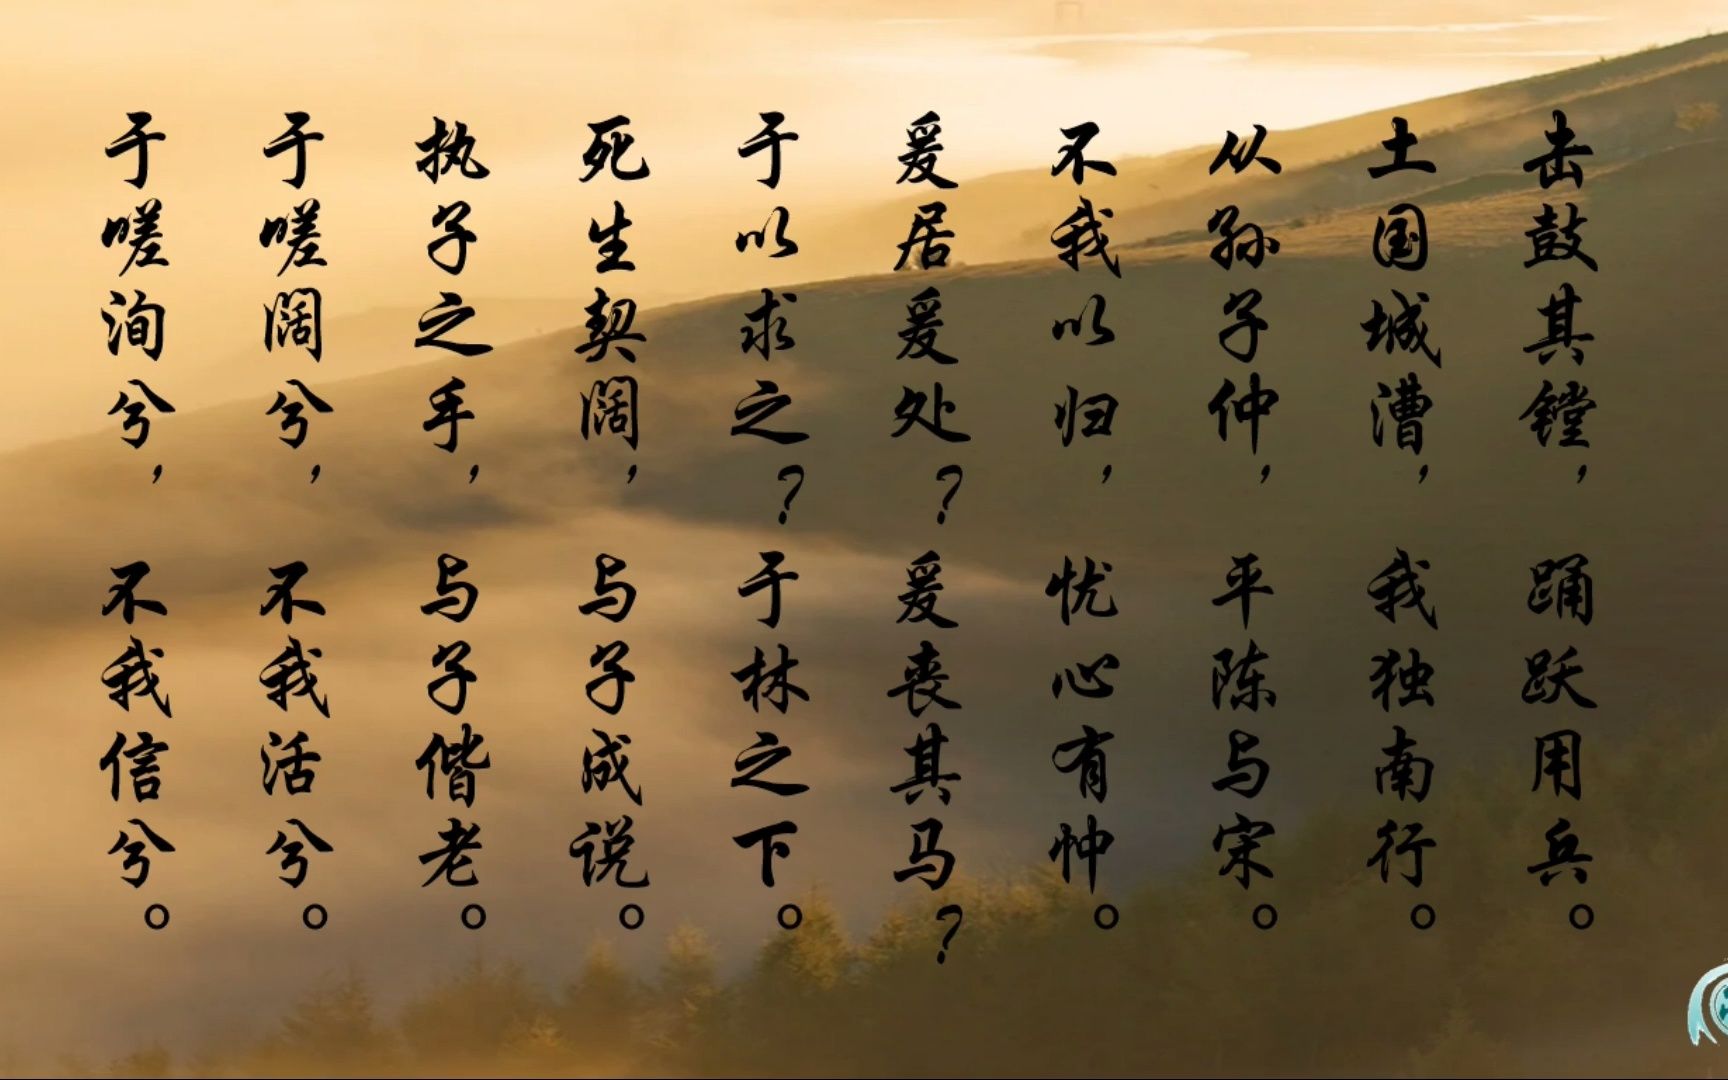 击鼓其镗，踊跃用兵。
土国城漕，我独南行。
从孙子仲，平陈与宋。
不我以归，忧心有忡。
爰居爰处？爰丧其马？
于以求之？于林之下。
死生契阔，与子成说。
执子之手，与子偕老。
于嗟阔兮，不我活兮。
于嗟洵兮，不我信兮。